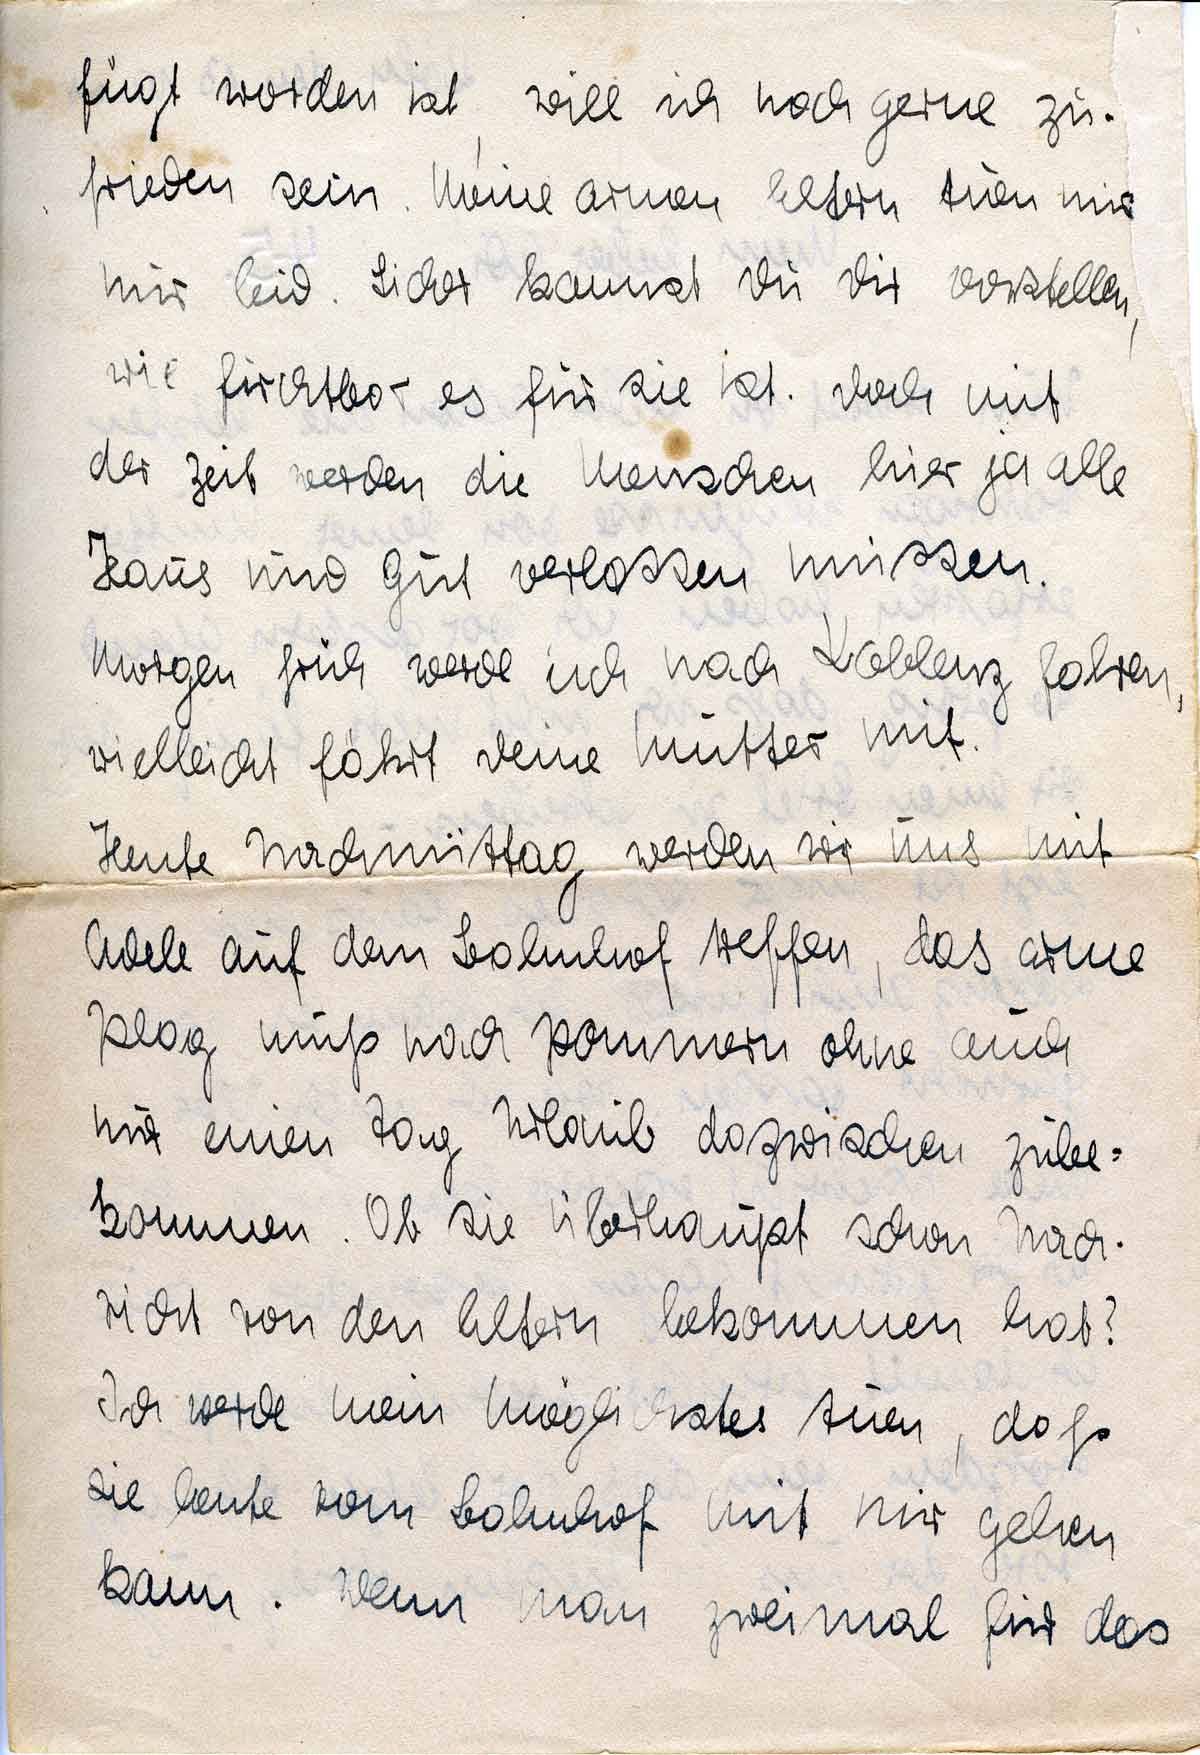 fügt worden ist, will ich noch gerne zu-
frieden sein. Meine armen Eltern tuen mir
nur leid. Sicher kannst Du Dir vorstellen,
wie furchtbar es für sie ist. Doch mit
der Zeit werden die Menschen hier ja alle
Haus und Gut verlassen müssen.
Morgen früh werde ich nach Koblenz fahren,
vielleicht fährt Deine Mutter mit.
Heute Nachmittag werden wir uns mit
Adele auf dem Bahnhof treffen, das arme
Plag muß nach Pommern ohne auch
nur einen Tag Urlaub dazwischen zube=
kommen. Ob sie überhaupt schon Nach-
richt von den Eltern bekommen hat?
Ich werde mein Möglichstes tuen, daß
sie heute vom Bahnhof mit mir gehen
kann. Wenn man zweimal für das